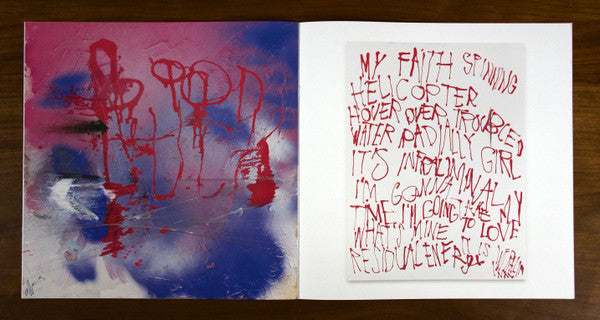 MY FAITH SPINNING
HELICOPTER
HOVER OVER TROUBLED
WATER RADIALLY GIRL
IT'S INFRALIMINAL
I'M GONNA TAKE MY
TIME I'M GOING TO LOVE
WHAT'S MINE IT IS
RESIDUAL ENERGY